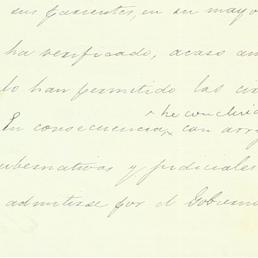 sus parientes, en su mayo
ha verificado, acaso an
lo han permitido las ci
he concluid
En consecuencia, con arr
ubernativos y judiciales
admitirse por el Gobierno